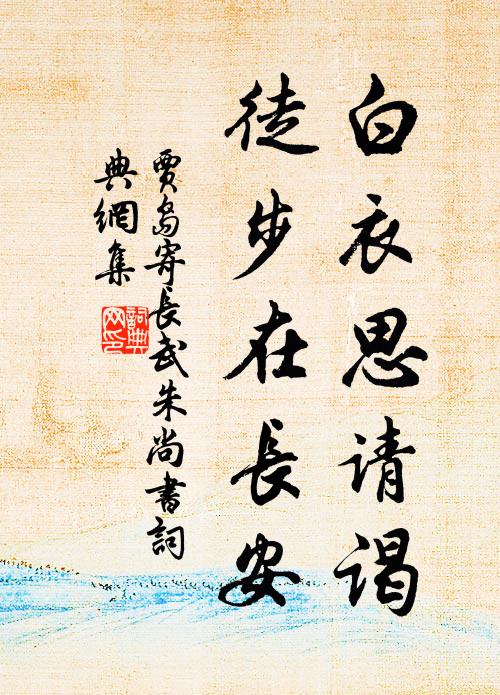 白衣思请谒
徒步在長安
賈島寄長武朱尚書詞
典網集
詞典
网印